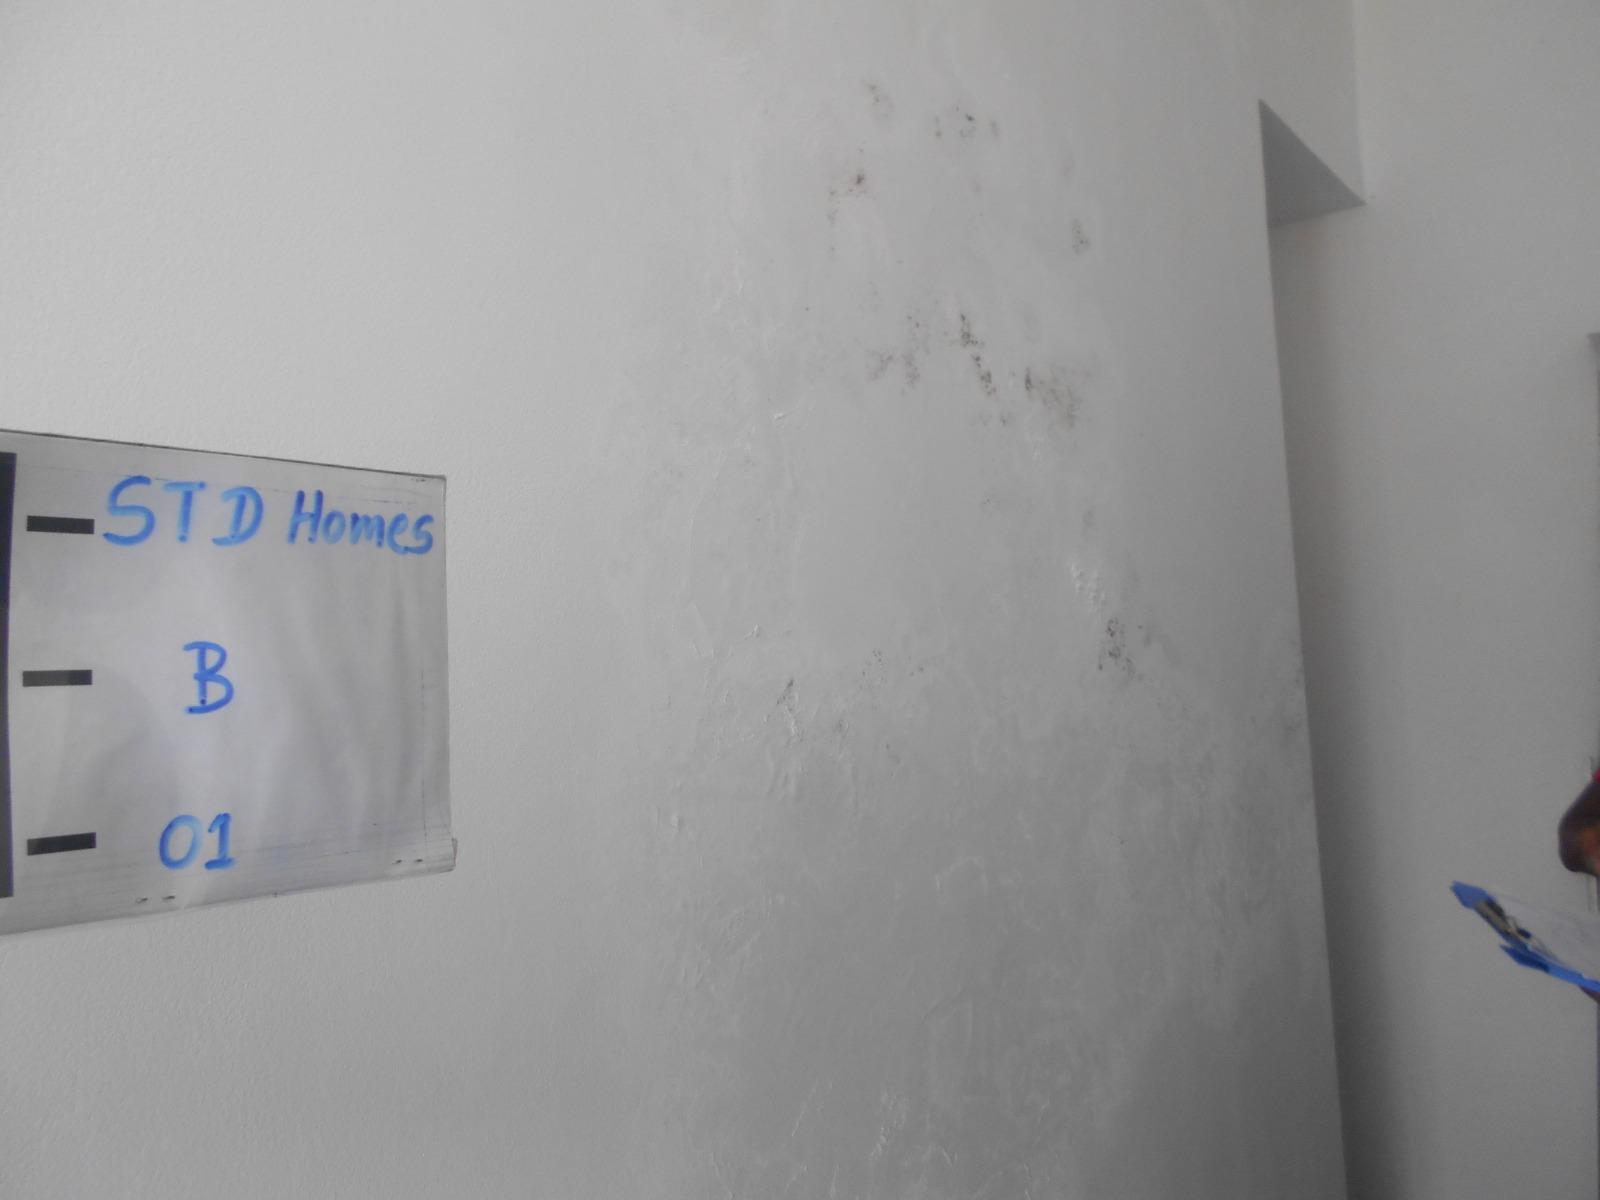 STD Homes
B
01